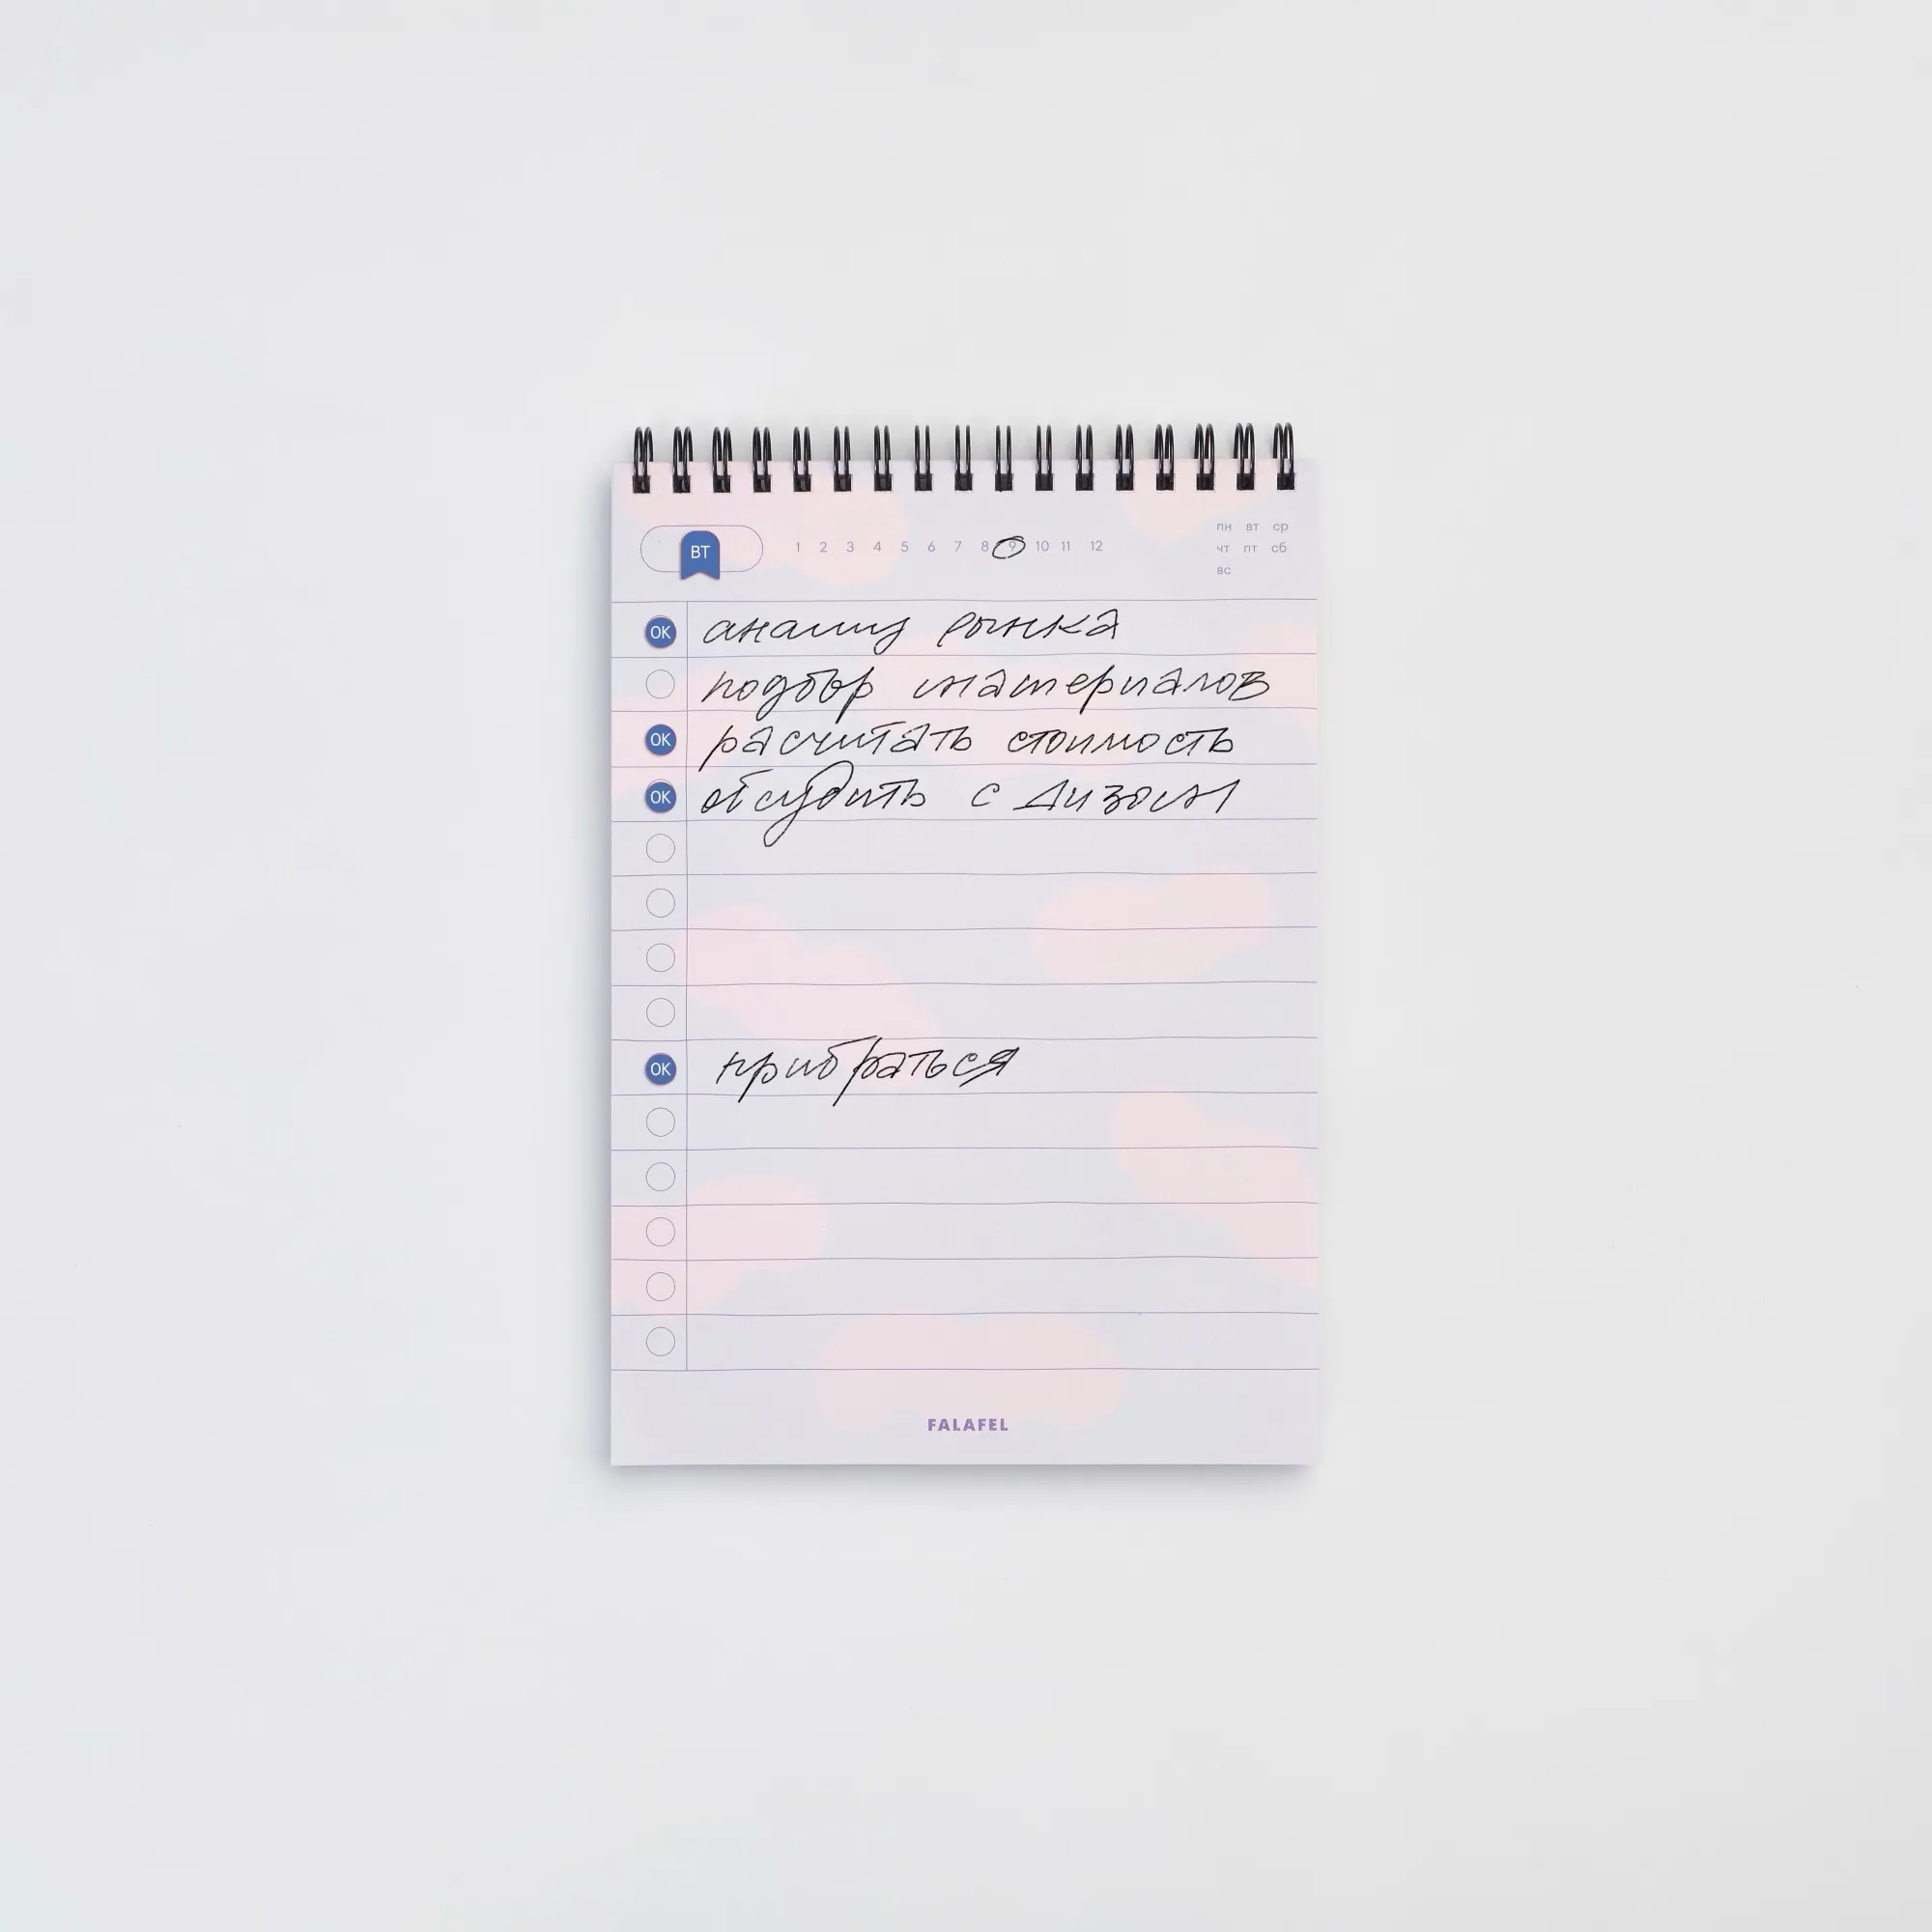 ВТ 1 2 3 4 5 6 7 8 9 10 11 12
пн вт ср
чт пт сб
вс
ОК анализ рынка
подбор материалов
ОК расчитать стоимость
ОК обсудить с Дизом
ОК прибраться
FALAFEL